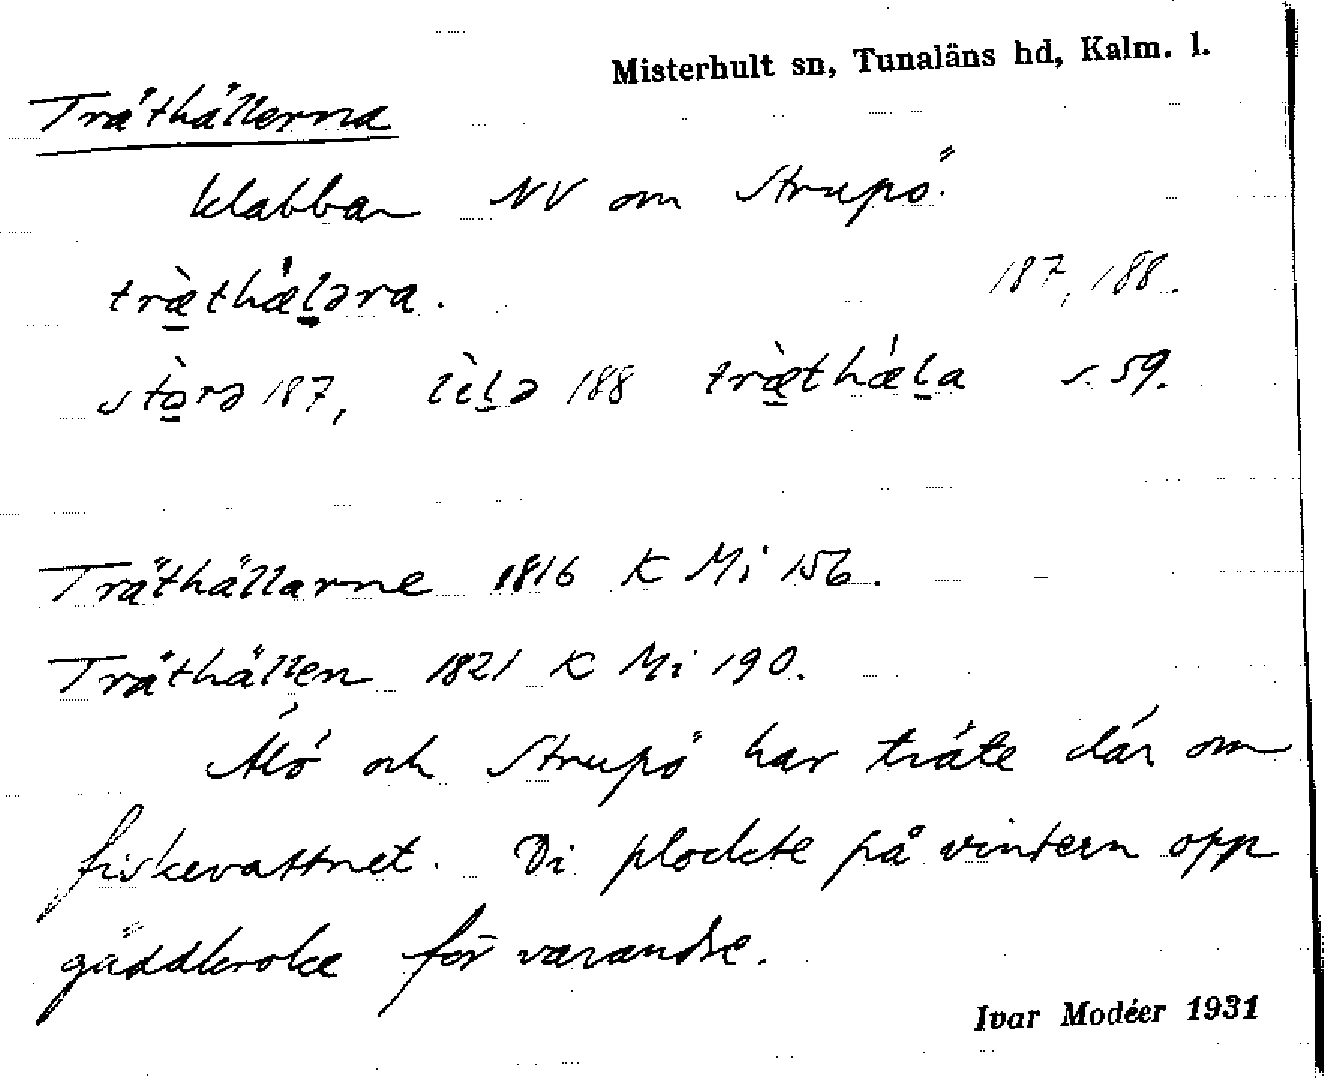 Misterhult sn, Tunaläns hd, Kalm. l.
Träthällerna
klabbar NV om Strupö.
træ̀thæ̀l̠əra. 187, 188.
stò̠rə 187, lìl̠ə 188 træ̠̀thæ̀l̠a s. 59.
Träthällarne 1816 K Mi 156.
Träthällen 1821 K Mi 190.
Älö och Strupö har träte där om
fiskevattnet. Di plockte på vintern opp
gäddkroke för varandre.
Ivar Modéer 1931